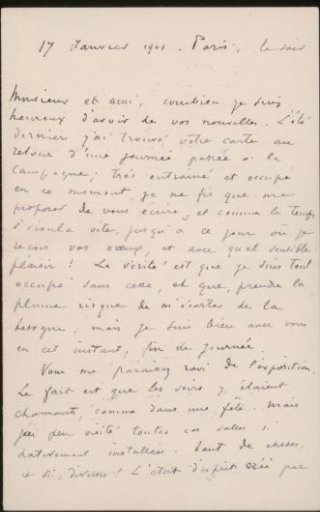 17 Janvier 1901. Paris. le soir
Monsieur et ami, combien je suis
heureux d'avoir de vos nouvelles. L'été
dernier j'ai trouvé votre carte au
retour d'une journée passée à la
Campagne; très entrainé et occupé
en ce moment, je ne fis que me
proposer de vous écrire, et comme le temps
s'écoula vite, jusqu'à ce jour où je
reçois vos vœux, et avec quel sensible
plaisir! La vérité est que je suis tout
occupé sans cesse, et que, prendre la
plume risque de m'écarter de la
besogne; mais je suis bien avec vous
en cet instant, fin de journée.
Vous me paraissez ravi de l'exposition.
Le fait est que les soirs y étaient
charmants, comme dans une fête. Mais
j'ai peu visité toutes ces salles si
hativement installées. Tant de choses
et si diverses! L'état d'esprit créé par